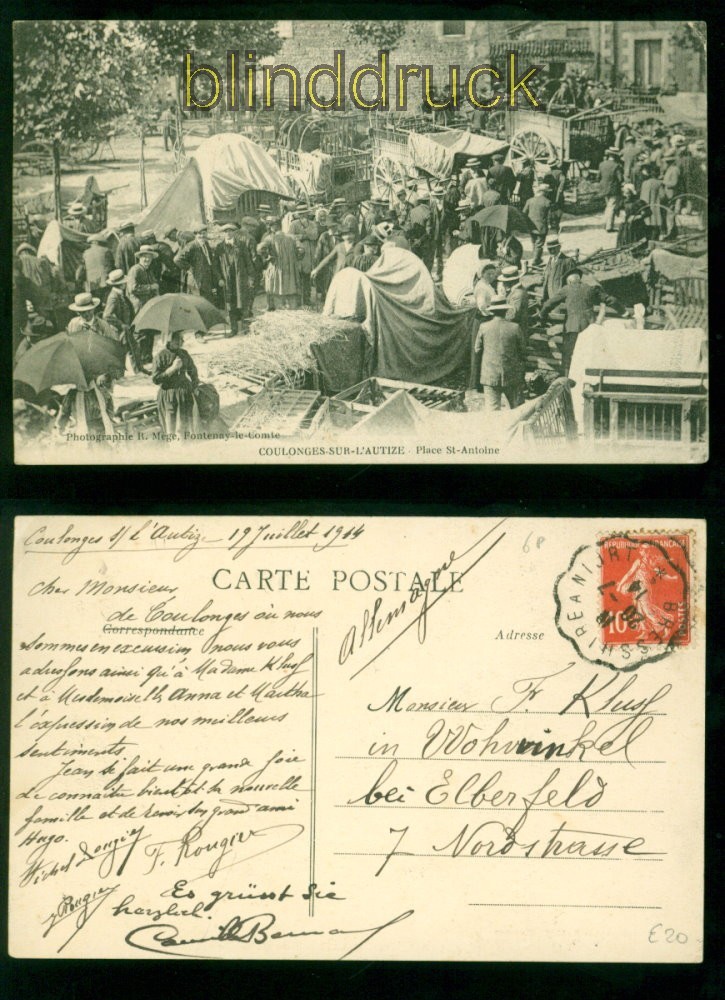 blinddruck
Photographie R. Mège, Fontenay-le-Comte
COULONGES-SUR-L'AUTIZE - Place St-Antoine
Coulonges s/ l'Autize 19 Juillet 1914
68
CARTE POSTALE
Correspondance
Adresse
Allemagne
RÉPUBLIQUE FRANÇAISE
10
POSTES
BRESSUIRE A NIORT
Cher Monsieur
de Coulonges où nous
sommes en excursion nous vous
adressons ainsi qu'à Madame Klug
et à Mesdemoiselles Anna et Martha
l'expression de nos meilleurs
sentiments
Jean se fait une grande joie
de connaître bientôt sa nouvelle
famille et de revoir son grand ami
Hugo.
Michel Rougier
F. Rougier
J Rougier
Es grüsst Sie
herzlich.
Camille
Monsieur Fr. Klug
in Vohwinkel
bei Elberfeld
7 Nordstrasse
£20